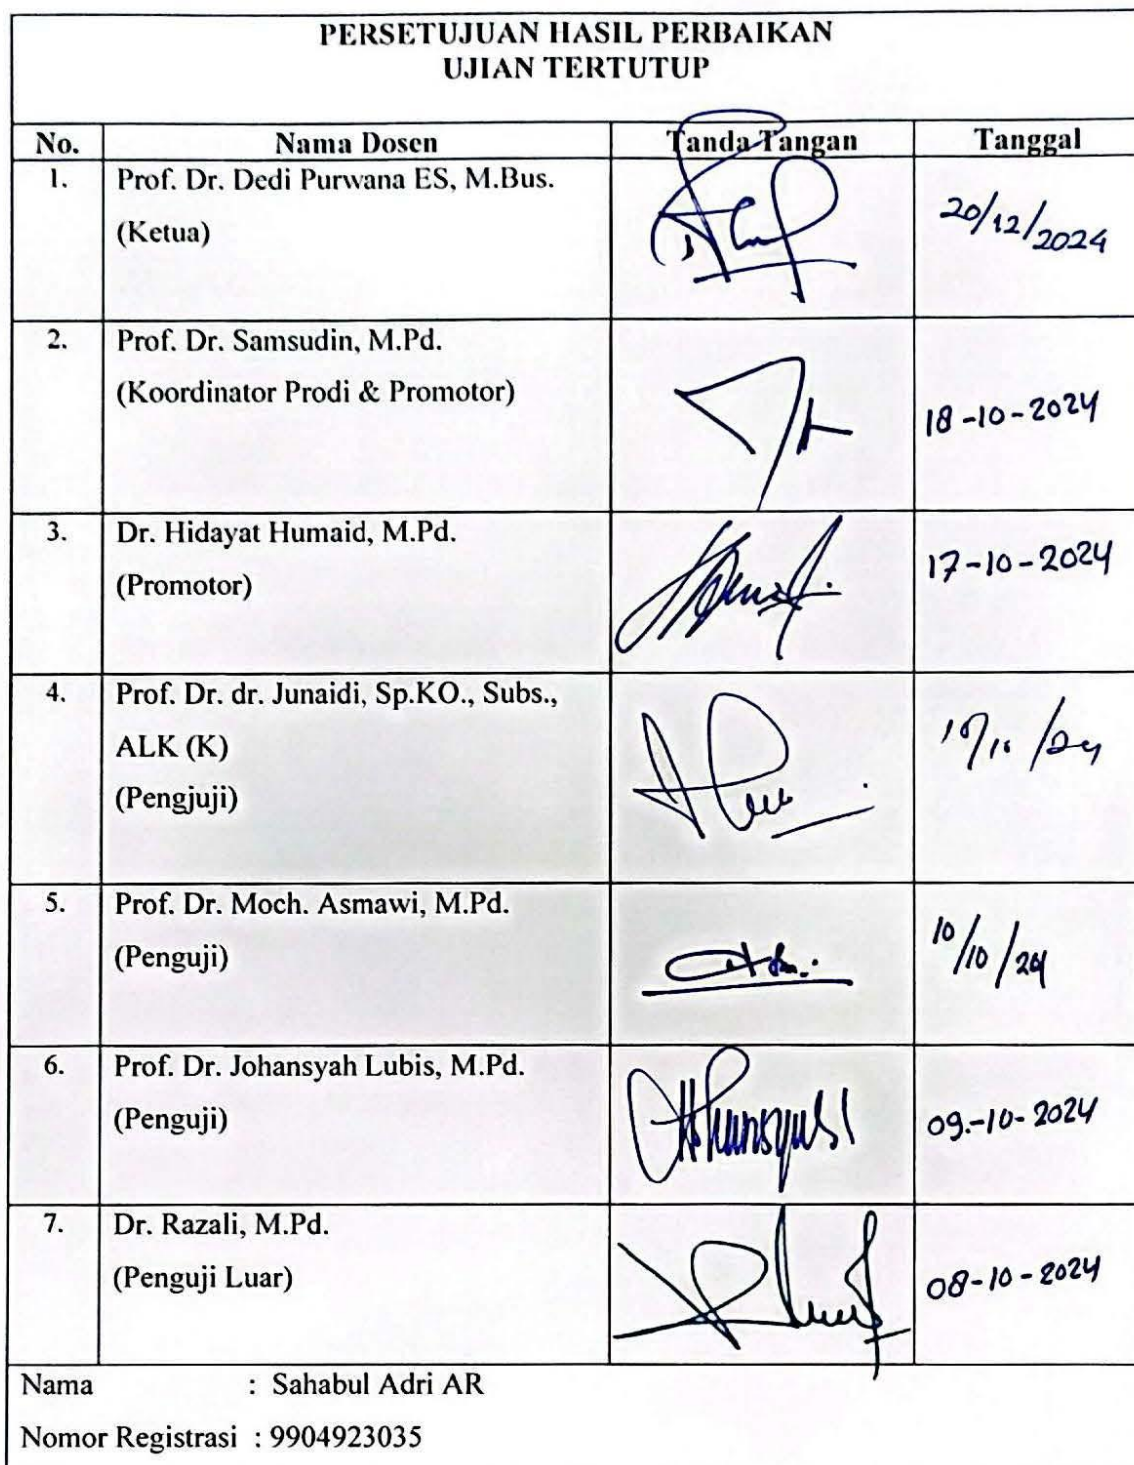 PERSETUJUAN HASIL PERBAIKAN
UJIAN TERTUTUP
No. Nama Dosen Tanda Tangan Tanggal
1. Prof. Dr. Dedi Purwana ES, M.Bus.
(Ketua) 20/12/2024
2. Prof. Dr. Samsudin, M.Pd.
(Koordinator Prodi & Promotor) 18-10-2024
3. Dr. Hidayat Humaid, M.Pd.
(Promotor) 17-10-2024
4. Prof. Dr. dr. Junaidi, Sp.KO., Subs.,
ALK (K)
(Pengjuji)
5. Prof. Dr. Moch. Asmawi, M.Pd.
(Penguji) 10/10/24
6. Prof. Dr. Johansyah Lubis, M.Pd.
(Penguji) 09.-10-2024
7. Dr. Razali, M.Pd.
(Penguji Luar) 08-10-2024
Nama : Sahabul Adri AR
Nomor Registrasi : 9904923035